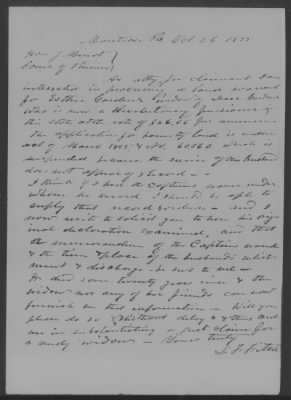 Montrose Pa Oct 26 1857
Hon J Minot
Comr of Pensions
As atty for claimant I am
interested in procuring a land warrant
for Esther Gardner widow of Isaac Gardner
who is now a Revolutionary pensioner of
this state at the rate of $26.66 per annum
The application for bounty land is under
act of March 1855 & No. 60560 which is
suspended because the service of her husband
does not appear of record
I think if I had the Captains name under
whom he served I should be able to
supply that record evidence and I
now write to solicit you to have his orig
inal declaration examined, and that
the memorandum of the Captains name
& the time & place of the husbands inlist
ment & discharge be sent to me
He died some twenty years since & the
widow nor any of her friends can now
furnish me that information Will you
please do so without delay & thus aid
me in substantiating a just claim for
a needy widow Yours truly